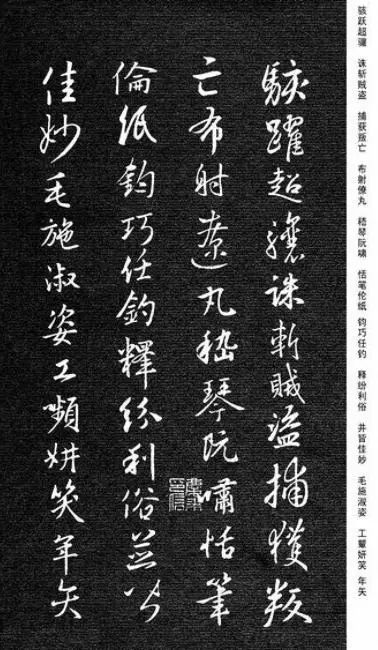 骇跃超骧 诛斩贼盗 捕获叛亡 布射僚丸 嵇琴阮啸 恬笔伦纸 钧巧任钓 释纷利俗 并皆佳妙 毛施淑姿 工颦妍笑 年矢
駭躍超驤誅斬賊盜捕獲叛
亡布射遼丸嵇琴阮嘯恬筆
倫紙鈞巧任釣釋紛利俗並皆
佳妙毛施淑姿工嚬妍笑年矢